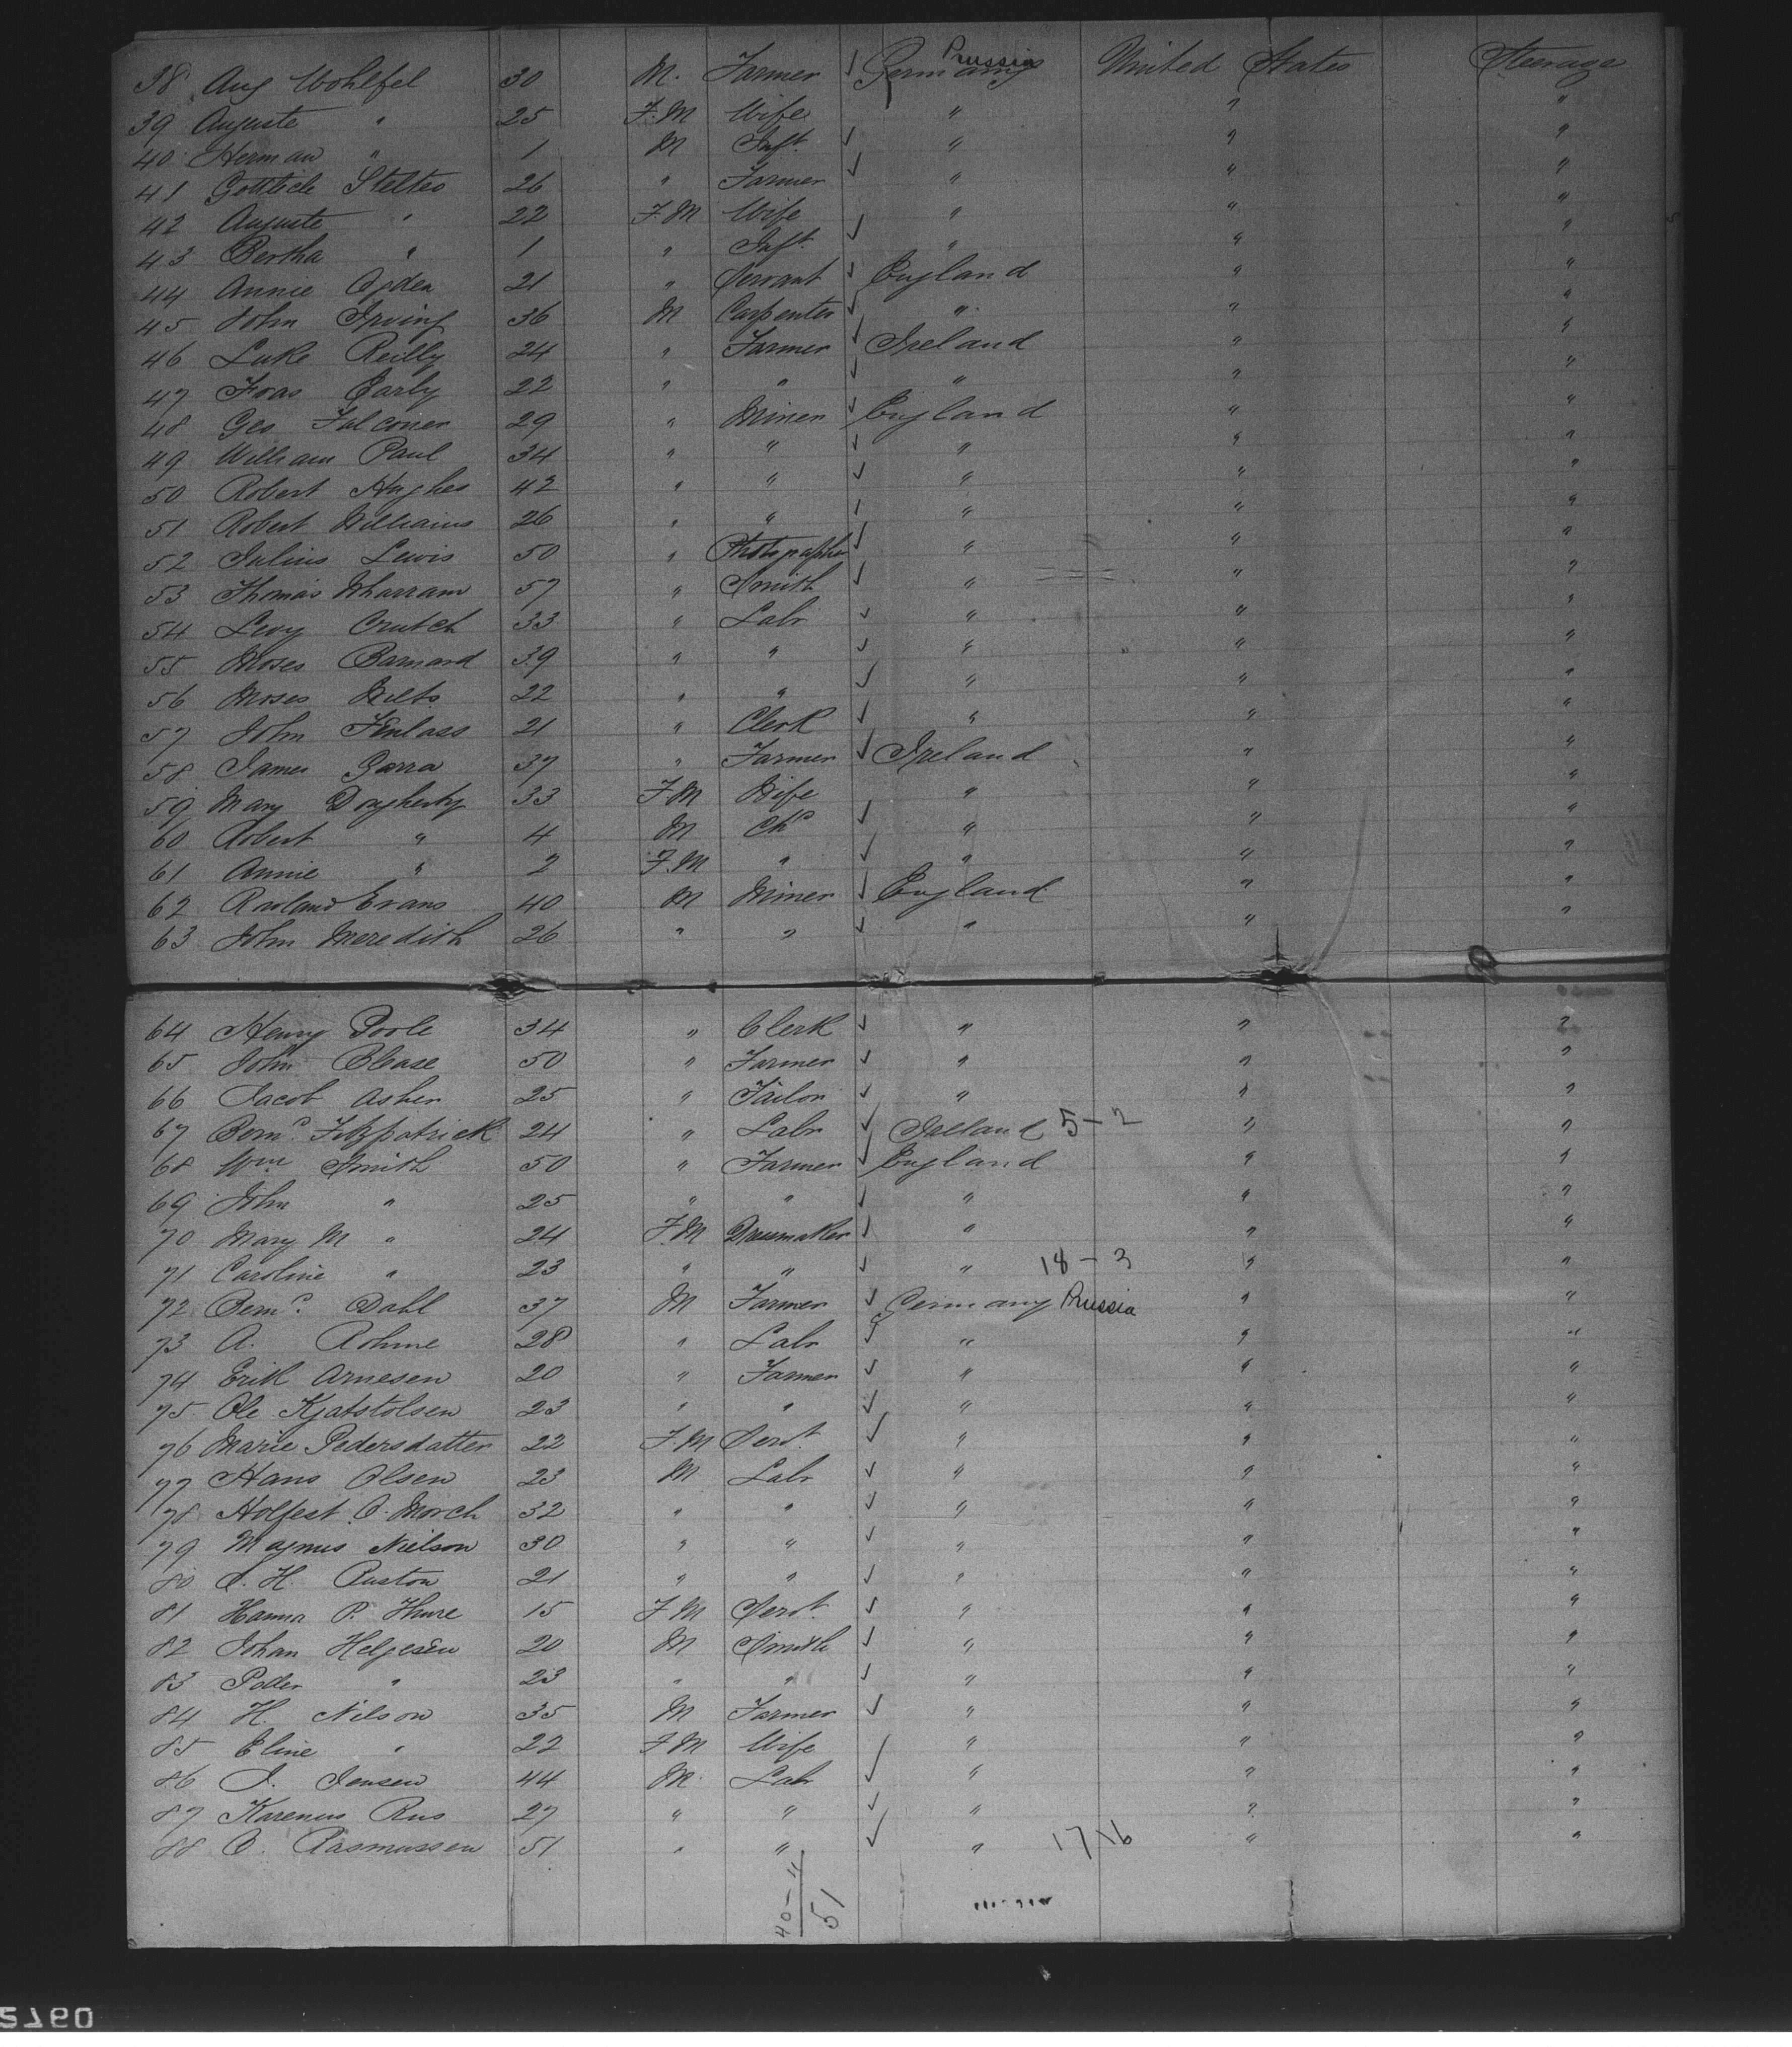 38 Aug Wohlfel 30 M. Farmer ✓ Germany Prussia United States Steerage
39 Auguste " 25 F.M Wife " " "
40 Herman " 1 M Inft. ✓ " " "
41 Gottlieb Stelter 26 " Farmer ✓ " " "
42 Auguste " 22 F.M Wife " " "
43 Bertha " 1 " Inft. ✓ " " "
44 Annie Ogden 21 " Servant ✓ England " "
45 John Irving 36 M Carpenter ✓ " " "
46 Luke Reilly 24 " Farmer ✓ Ireland " "
47 Early 22 " " ✓ " " "
48 Geo Falconer 29 " Miner ✓ England " "
49 William Paul 34 " " ✓ " " "
50 Robert Hughes 42 " " ✓ " " "
51 Robert Williams 26 " " ✓ " " "
52 Julius Lewis 50 " Photographer ✓ " " "
53 Thomas Wharram 57 " Smith ✓ " " "
54 Levy Crutch 33 " Labr ✓ " " "
55 Moses Barnard 39 " " ✓ " " "
56 Moses Wilts 22 " " ✓ " " "
57 John 21 " Clerk ✓ " " "
58 James Garra 37 " Farmer ✓ Ireland " "
59 Mary Dogherty 33 F.M Wife " " "
60 Robert " 4 M Chd ✓ " " "
61 Annie " 2 F.M " ✓ " " "
62 Evans 40 M Miner ✓ England " "
63 John Meredith 26 " " ✓ " " "
64 Henry Poole 34 " Clerk ✓ " " "
65 John Blease 50 " Farmer ✓ " " "
66 Jacob Asher 25 " Tailor ✓ " " "
67 Bernd. Fitzpatrick 24 " Labr ✓ Ireland 5-2 " "
68 Wm Smith 50 " Farmer ✓ England " "
69 John " 25 " " ✓ " " "
70 Mary M " 24 F.M Dressmaker ✓ " " "
71 Caroline " 23 " " ✓ " 18-3 " "
72 Bernd. Dahl 37 M Farmer ✓ Germany Prussia " "
73 A. Rohme 28 " Labr ✓ " " "
74 Erik Arnesen 20 " Farmer ✓ " " "
75 Ole Kjatstolsen 23 " " ✓ " " "
76 Marie Pedersdatter 22 F.M Servt. ✓ " " "
77 Hans Olsen 23 M Labr ✓ " " "
78 Holfest O. Morch 32 " " ✓ " " "
79 Magnus Nielson 30 " " ✓ " " "
80 H. Ruston 21 " " ✓ " " "
81 Hanna P. Thure 15 F.M Servt. ✓ " " "
82 Johan Helgesen 20 M Smith ✓ " " "
83 Peder " 23 " " ✓ " " "
84 H. Nilson 35 M Farmer ✓ " " "
85 Eline " 22 F.M Wife " " "
86 J. Jensen 44 M. Labr ✓ " " "
87 Karenus Rus 27 " " ✓ " " "
88 O. Rasmussen 51 " " ✓ " 17 16 " "
40-11
51